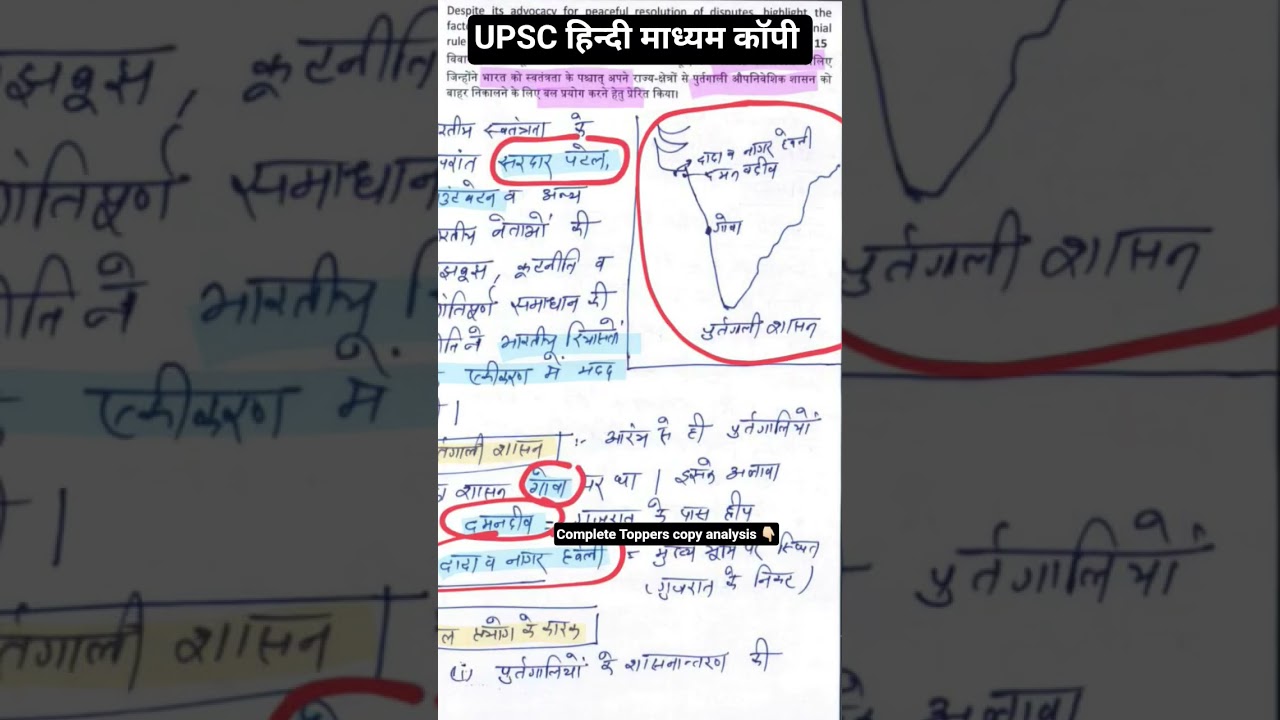 Despite its advocacy for peaceful resolution of disputes, highlight the
UPSC हिन्दी माध्यम कॉपी
fact
nial
rule
15
विवा
लिए
जिन्होंने भारत को स्वतंत्रता के पश्चात् अपने राज्य-क्षेत्रों से पुर्तगाली औपनिवेशिक शासन को
बाहर निकालने के लिए बल प्रयोग करने हेतु प्रेरित किया।
रतीय स्वतंत्रता के
परांत सरदार पटेल,
उंटबेटन व अन्य
रतीय नेताओं की
झबूझ, कूटनीति व
ांतिपूर्ण समाधान की
ीति ने भारतीय रियासतों
एकीकरण में मदद
दादा व नागर हवेली
दमन व दीव
गोवा
पुर्तगाली शासन
र्तगाली शासन :- आरंभ से ही पुर्तगालियों
शासन गोवा पर था | इसके अलावा
दमनदीव = गुजरात के पास द्वीप
Complete Toppers copy analysis 👇🏻
दादा व नागर हवेली = मुख्य भूमि पर स्थित
(गुजरात के निकट)
ल प्रयोग के कारक
(i) पुर्तगालियों के शासनान्तरण की